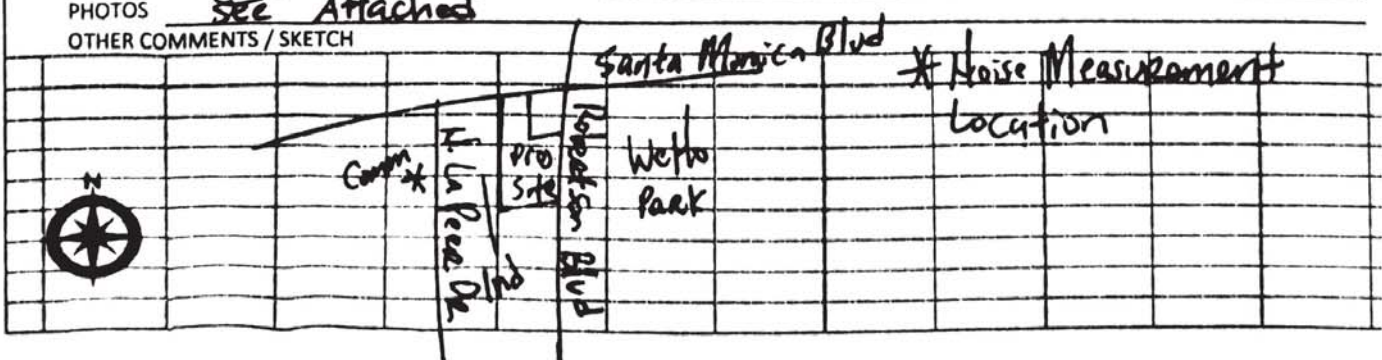 PHOTOS See Attached
OTHER COMMENTS / SKETCH
Santa Monica Blvd
* Noise Measurement
Location
N
Comm *
N. La Peer Dr
Ind
Pro
Site
Robertson Blvd
WeHo
Park